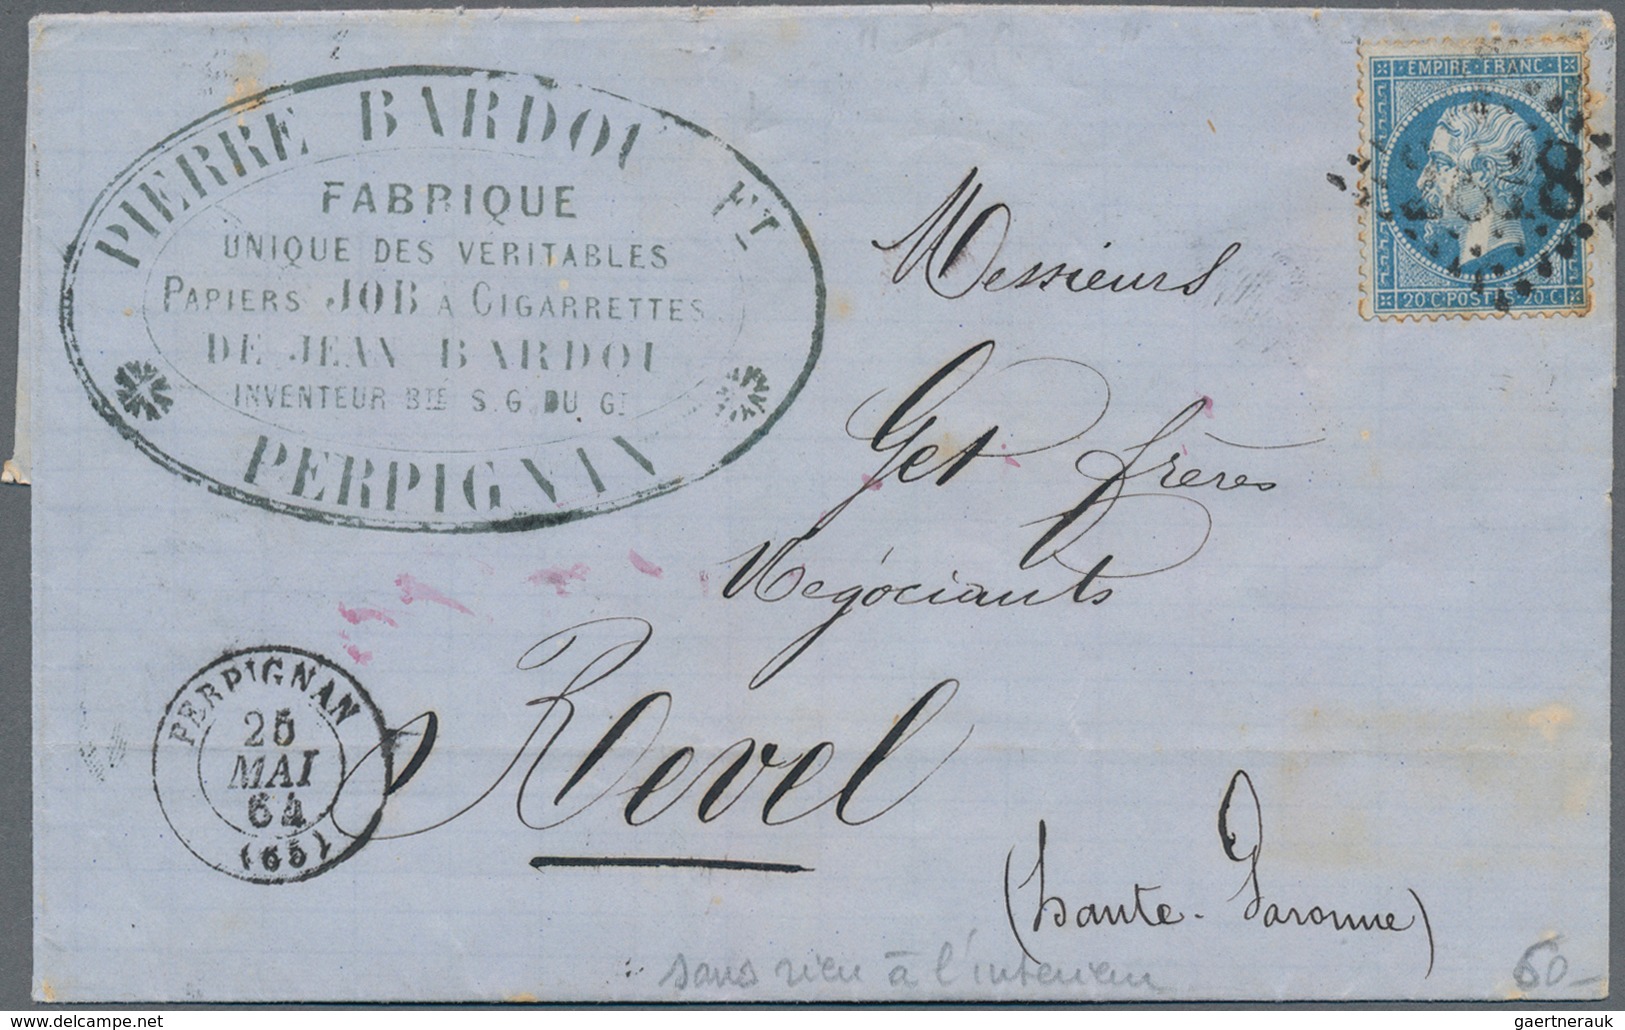 PIERRE BARDOU ET
FABRIQUE
UNIQUE DES VERITABLES
PAPIERS JOB A CIGARRETTES
DE JEAN BARDOU
INVENTEUR BTÉ S. G. DU GT
PERPIGNAN
EMPIRE FRANC
20 C POSTES 20 C
Messieurs
Get frères
Négociants
Revel
(haute-Garonne)
PERPIGNAN
25
MAI
64
(65)
sans rien à l'interieur
60-
www.delcampe.net
gaertnerauk